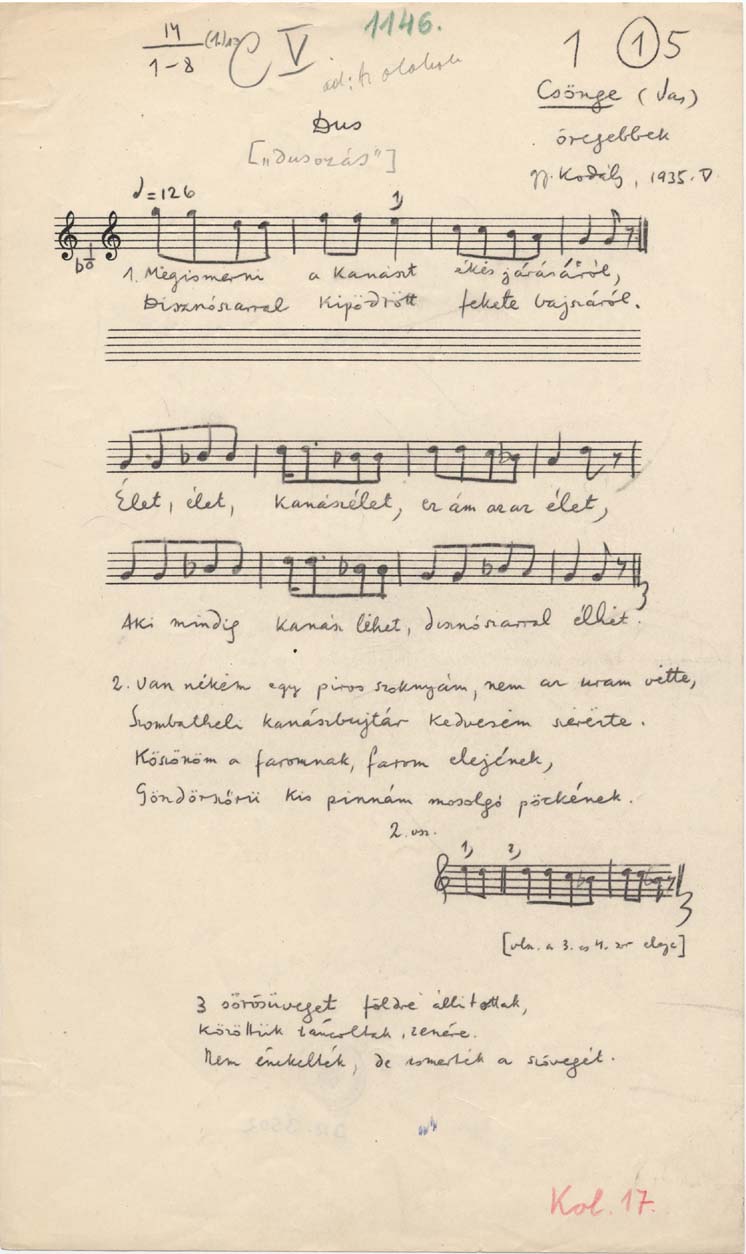 1146.
14
1-8
C V
1 1 5
Csönge (Vas)
öregebbek
gy. Kodály, 1935. V
Dus
["dusozás"]
♩=126
1)
1. Mëgismerni a Kanászt ékës járásáról,
Disznószarral kipödrött fekete bajszáról.
Élet, élet, Kanászélet, ez ám az az élet,
Aki mindig Kanász lëhet, disznószarral élhet.
2. Van nékëm egy piros szoknyám, nem az uram vëtte,
Szombatheli kanászbujtár kedvesëm szërëzte.
Köszönöm a faromnak, farom elejének,
Göndörszőrü kis pinnám mosolgó pöckének.
2. vsz.
1) 2)
[vltn. a 3. és 4. sor eleje]
3 sörösüveget földre állitottak,
közöttük táncoltak, zenére.
Nem énekelték, de ismerték a szövegét.
Kol. 17.